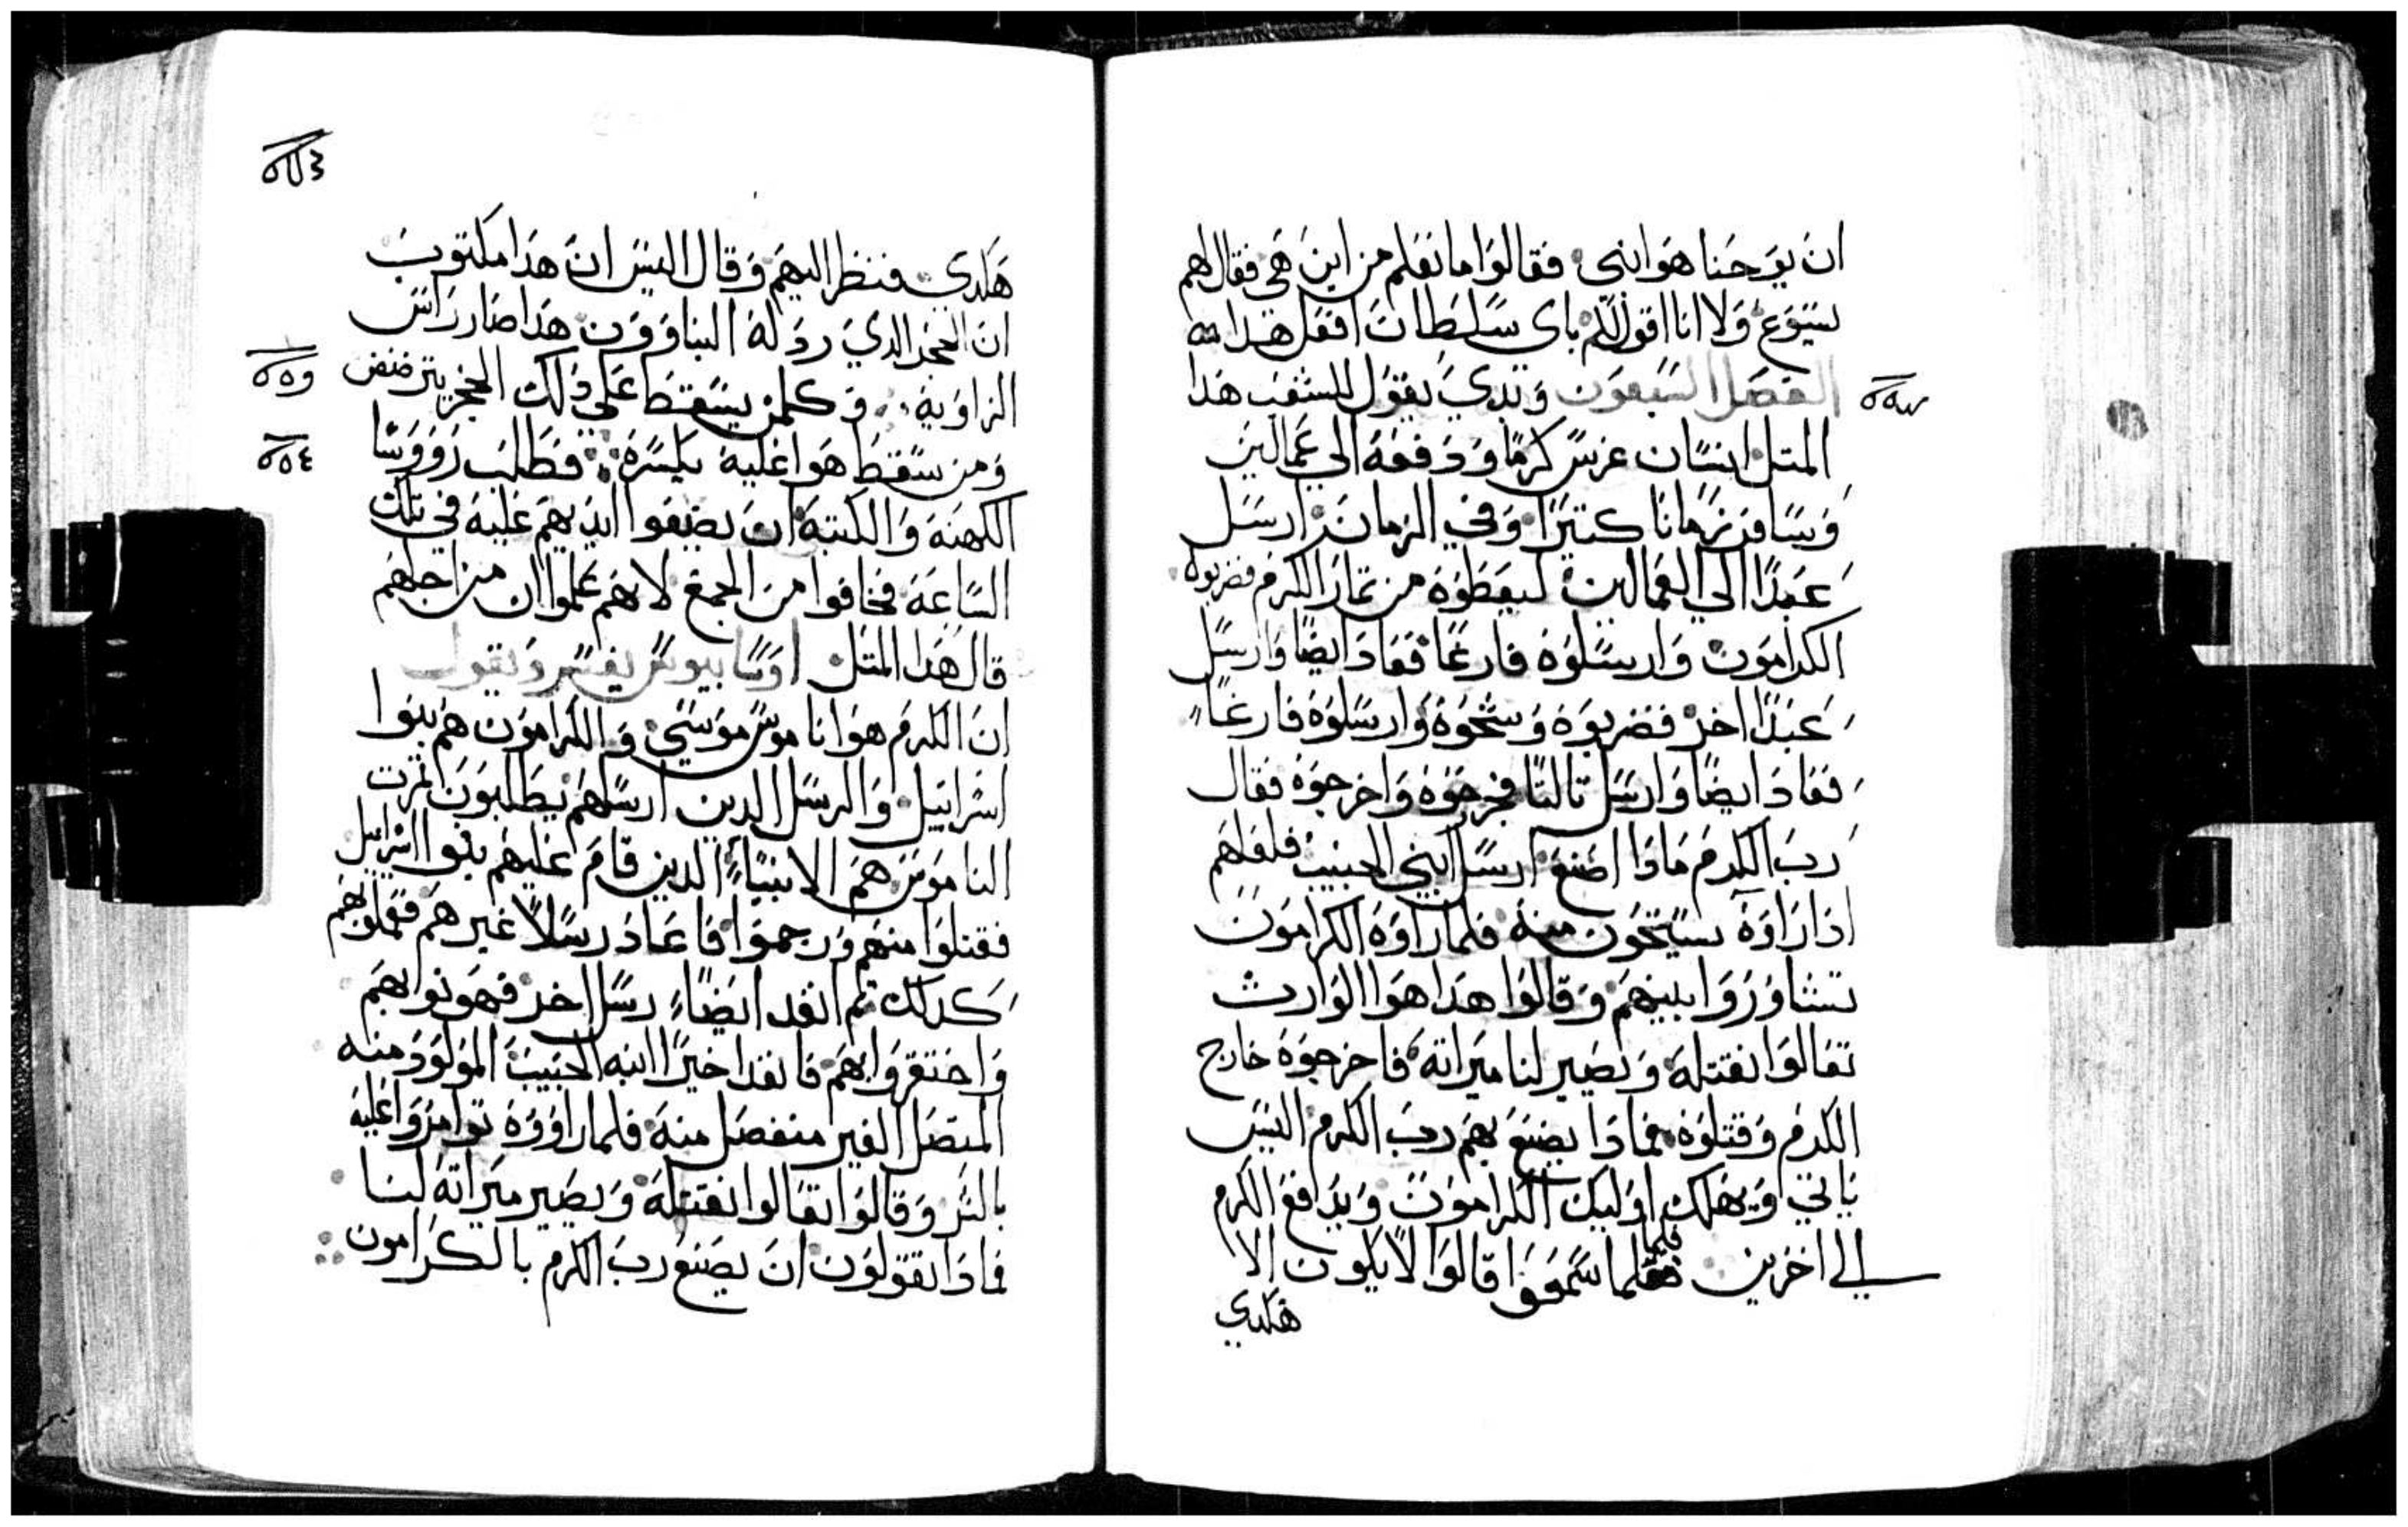 ان يوحنا هو ابني فقالوا ما نعلم من اين هي فقال لهم
يسوع ولا انا اقول لكم باي سلطان افعل هدا
الفصل السبعون وبدي يقول للشعب هدا
المتل انسان غرس كرمًا ودفعه الي عمالين
وسافر زمانا كتيرًا وفي الزمان ارسل
عبدًا الي العمالين ليعطوه من تمار الكرم فضربوه
الكرامون وارسلوه فارغًا فعاد ايضًا وارسل
عبدًا اخر فضربوه وشتموه وارسلوه فارغًا
فعاد ايضًا وارسل تالتًا فجرحوه واخرجوه فقال
رب الكرم مادا اصنع ارسل ابني الحبيب فلعلهم
ادا راوه يستحون منه فلما راوه الكرامون
تشاوروا بينهم وقالوا هدا هوا الوارث
تعالوا نقتله ويصير لنا ميراته فاخرجوه خارج
الكرم وقتلوه فمادا يصنع بهم رب الكرم اليس
ياتي ويهلك اوليك الكرامون ويدافع الكرم
الي اخرين فلما سمعوا قالوا لا يكون الا
هكدي
هكدي فنظر اليهم وقال اليس ان هدا مكتوب
ان الحجر الدي ردله البناوون هدا صار راس
الزاويه وكلمن يسقط علي دلك الحجر يترضض
ومن سقط هوا عليه يكسره فطلب رووسا
الكهنه والكتبه ان يضعوا ايديهم عليه في تلك
الساعه فخافوا من الجمع لانهم علموا ان من اجلهم
قال هدا المتل اوسابيوس يفسر ويقول
ان الكرم هو اناموس موسي والكرامون هم بنوا
اسراييل والرسل الدين ارسلهم يطلبون تمرت
الناموس هم الانبياء الدين قام عليهم بنوا اسراييل
فقتلوا منهم ورجموا فاعاد رسلاً غيرهم ففعلوا بهم
كدلك تم انفد ايضًا رسل اخر فهونوا بهم
واحتقروا بهم فانفد اخيرًا ابنه الحبيب المولود منه
المتصل الغير منفصل منه فلما راووه توامروا عليه
بالشر وقالوا تعالوا نقتله ويصير ميراته لنا
فمادا تقولون ان يصنع رب الكرم بالكرامون